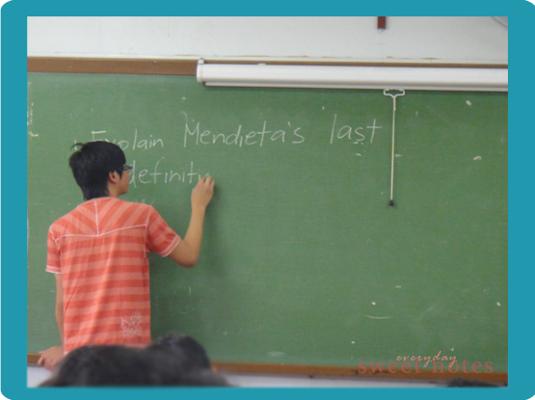 Explain Mendieta's last
definity
everyday
sweet notes